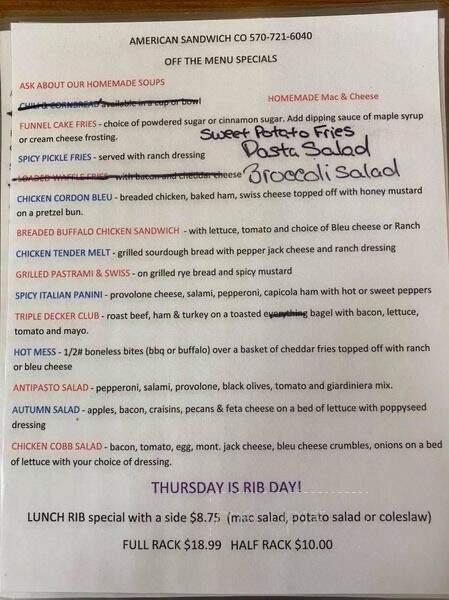 AMERICAN SANDWICH CO 570-721-6040
OFF THE MENU SPECIALS
ASK ABOUT OUR HOMEMADE SOUPS
CHILI & CORNBREAD available in a cup or bowl
HOMEMADE Mac & Cheese
FUNNEL CAKE FRIES - choice of powdered sugar or cinnamon sugar. Add dipping sauce of maple syrup
or cream cheese frosting.
Sweet Potato Fries
SPICY PICKLE FRIES - served with ranch dressing
Pasta Salad
LOADED WAFFLE FRIES - with bacon and cheddar cheese
Broccoli Salad
CHICKEN CORDON BLEU - breaded chicken, baked ham, swiss cheese topped off with honey mustard
on a pretzel bun.
BREADED BUFFALO CHICKEN SANDWICH - with lettuce, tomato and choice of Bleu cheese or Ranch
CHICKEN TENDER MELT - grilled sourdough bread with pepper jack cheese and ranch dressing
GRILLED PASTRAMI & SWISS - on grilled rye bread and spicy mustard
SPICY ITALIAN PANINI - provolone cheese, salami, pepperoni, capicola ham with hot or sweet peppers
TRIPLE DECKER CLUB - roast beef, ham & turkey on a toasted everything bagel with bacon, lettuce,
tomato and mayo.
HOT MESS - 1/2# boneless bites (bbq or buffalo) over a basket of cheddar fries topped off with ranch
or bleu cheese
ANTIPASTO SALAD - pepperoni, salami, provolone, black olives, tomato and giardiniera mix.
AUTUMN SALAD - apples, bacon, craisins, pecans & feta cheese on a bed of lettuce with poppyseed
dressing
CHICKEN COBB SALAD - bacon, tomato, egg, mont. jack cheese, bleu cheese crumbles, onions on a bed
of lettuce with your choice of dressing.
THURSDAY IS RIB DAY!
LUNCH RIB special with a side $8.75 (mac salad, potato salad or coleslaw)
FULL RACK $18.99 HALF RACK $10.00